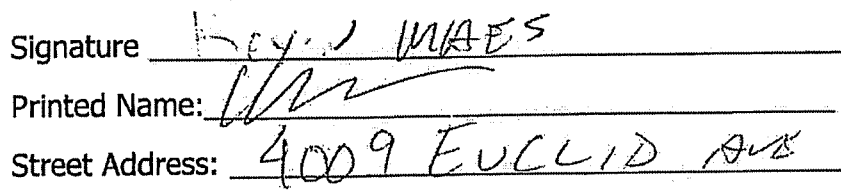 Signature MAES
Printed Name:
Street Address: 4009 EUCLID AVE